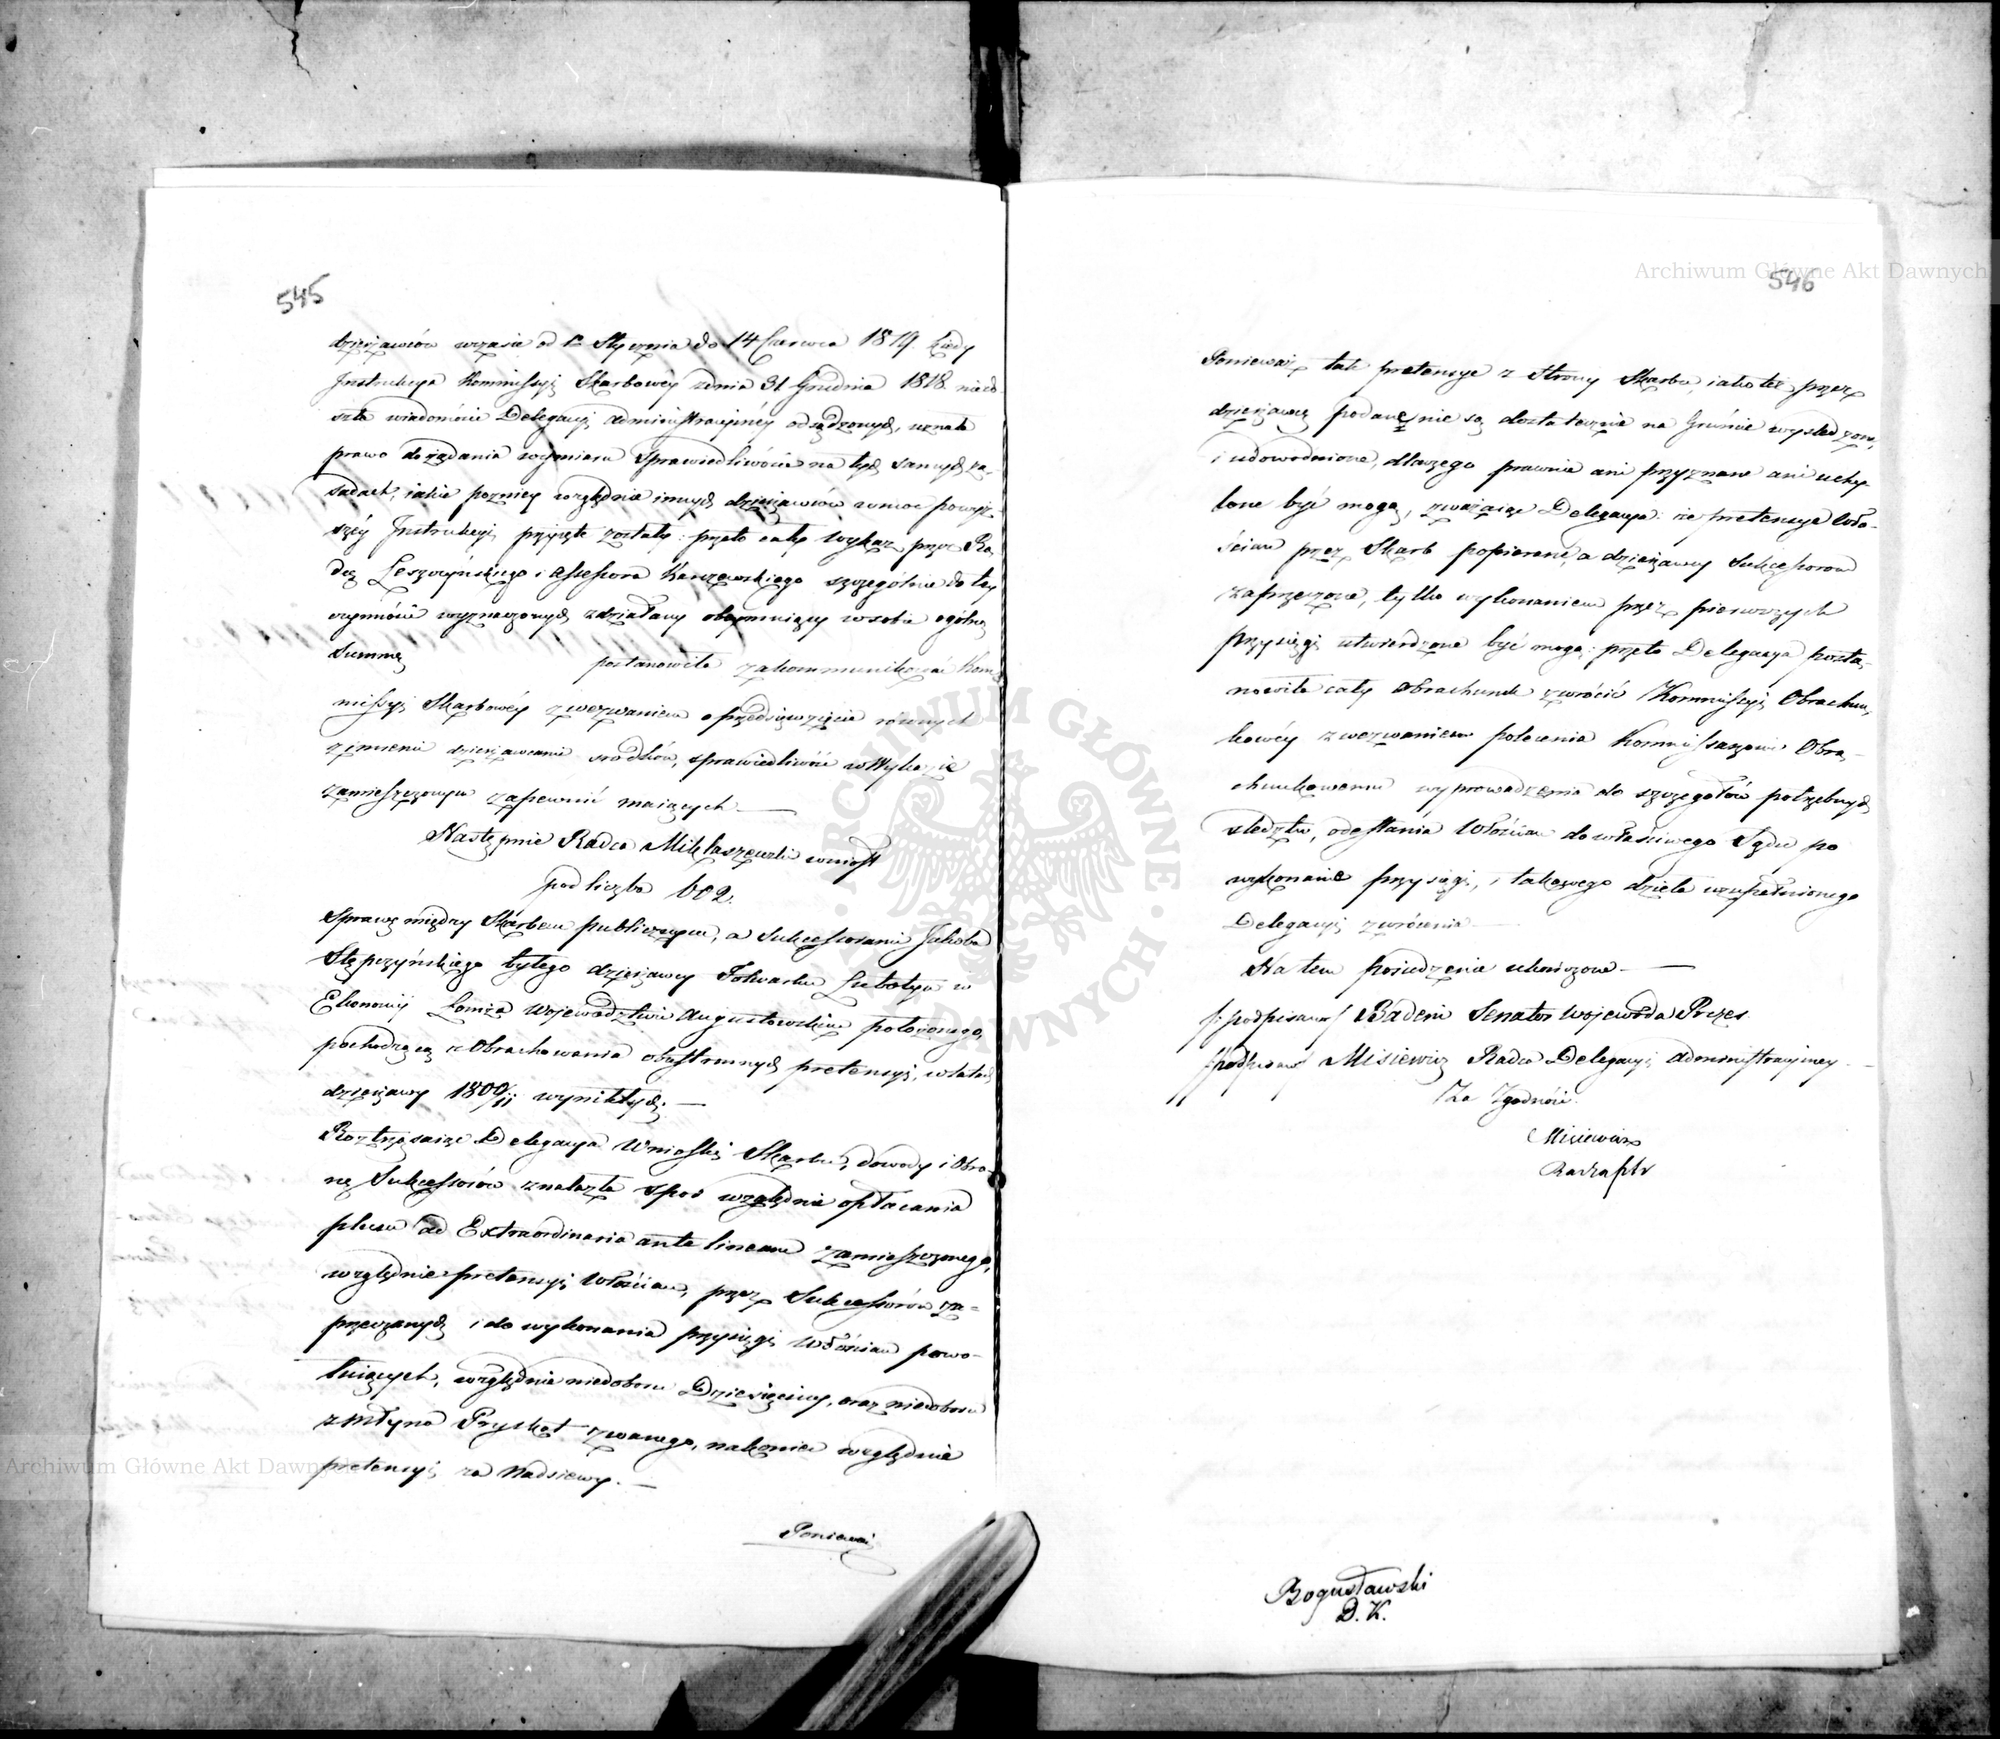 545
dzierżawców w czasie od 1º Stycznia do 14 Czerwca 1819. kiedy
Instrukcya Kommissyi Skarbowey z dnia 31 Grudnia 1818 niedo-
szła wiadomości Delegacyi administracyiney odsądzonych, uznała
prawo do żądania wymiaru Sprawiedliwości na tych samych za-
sadach, iakie pozniey względnie innych dzierżawców w moc powyż-
széy Instrukcyi przyięte zostały: przeto cały Wykaz przez Ra-
dcę Leszczyńskiego i Assessora Karczewskiego szczególnie do tey
czynności wyznaczonych zdziałany obeymuiący w sobie ogólną
Summę postanowiła zakommunikować Kom-
missyi Skarbowéy z wezwaniem o przedsięwzięcie równych
z imienia dzierżawcami srodków, sprawiedliwość w Wykazie
zamieszczonym zapewnić maiących —
Następnie Radca Miklaszewski wniosł
pod liczbą 602.
Sprawę między Skarbem publicznym, a Sukcessorami Jakóba
Stępczyńskiego byłego dzierżawcy Folwarku Lubotyn w
Ekonomii Łomża Województwie Augustowskim położonego,
pochodzącą z Obrachowania obustronnych pretensyi, w latach
dzierżawy 1809/11 wynikłych. —
Roztrząsaiąc Delegacya Wnioski Skarbu, dowody i Obro-
nę Sukcessorów znalazła spor względnie opłacania
plusu ad Extraordinaria ante lineam zamieszczonego,
względnie pretensyi Włościan, przez Sukcessorów za-
przeczanych i do wykonania przysięgi Włościan powo-
łuiących, względnie niedoboru Dziesięciny, oraz niedoboru
z młyna Pryskat zwanego, nakoniec względnie
pretensyi za Nadsiewy. —
Ponieważ
546
Ponieważ tak pretensye z strony Skarbu, iako też przez
dzierżawcę podane nie są dostatecznie na Gruncie wysledzone,
i udowodnione, dlaczego prawnie ani przyznane ani uchy-
lone być mogą, zważaiąc Delegacya: że pretensye Wło-
ścian przez Skarb popierane, a dzierżawcy Sukcessorów
zaprzeczone, tylko wykonaniem przez pierwszych
przysięgi utwierdzone być mogą; przeto Delegacya posta-
nowiła cały obrachunek zwrócić Kommissyi Obrachun-
kowéy z wezwaniem polecenia Kommissarzowi Obra-
chunkowemu wyprowadzenia do szczegołów potrzebnych
sledztw, odesłania Włościan do właściwego Sądu po
wykonanie przysięgi, i takowego dzieła uzupełnionego
Delegacyi zwrócenia —
Na tem posiedzenie ukończone. —
/: podpisano / Badeni Senator Wojewoda Prezes
/podpisano Misiewicz Radca Delegacyi administracyiney —
Za Zgodność.
Misiewicz
Bogusławski
D. K.
Archiwum Główne Akt Dawnych
Archiwum Główne Akt Dawnych
ARCHIWUM GŁÓWNE AKT DAWNYCH